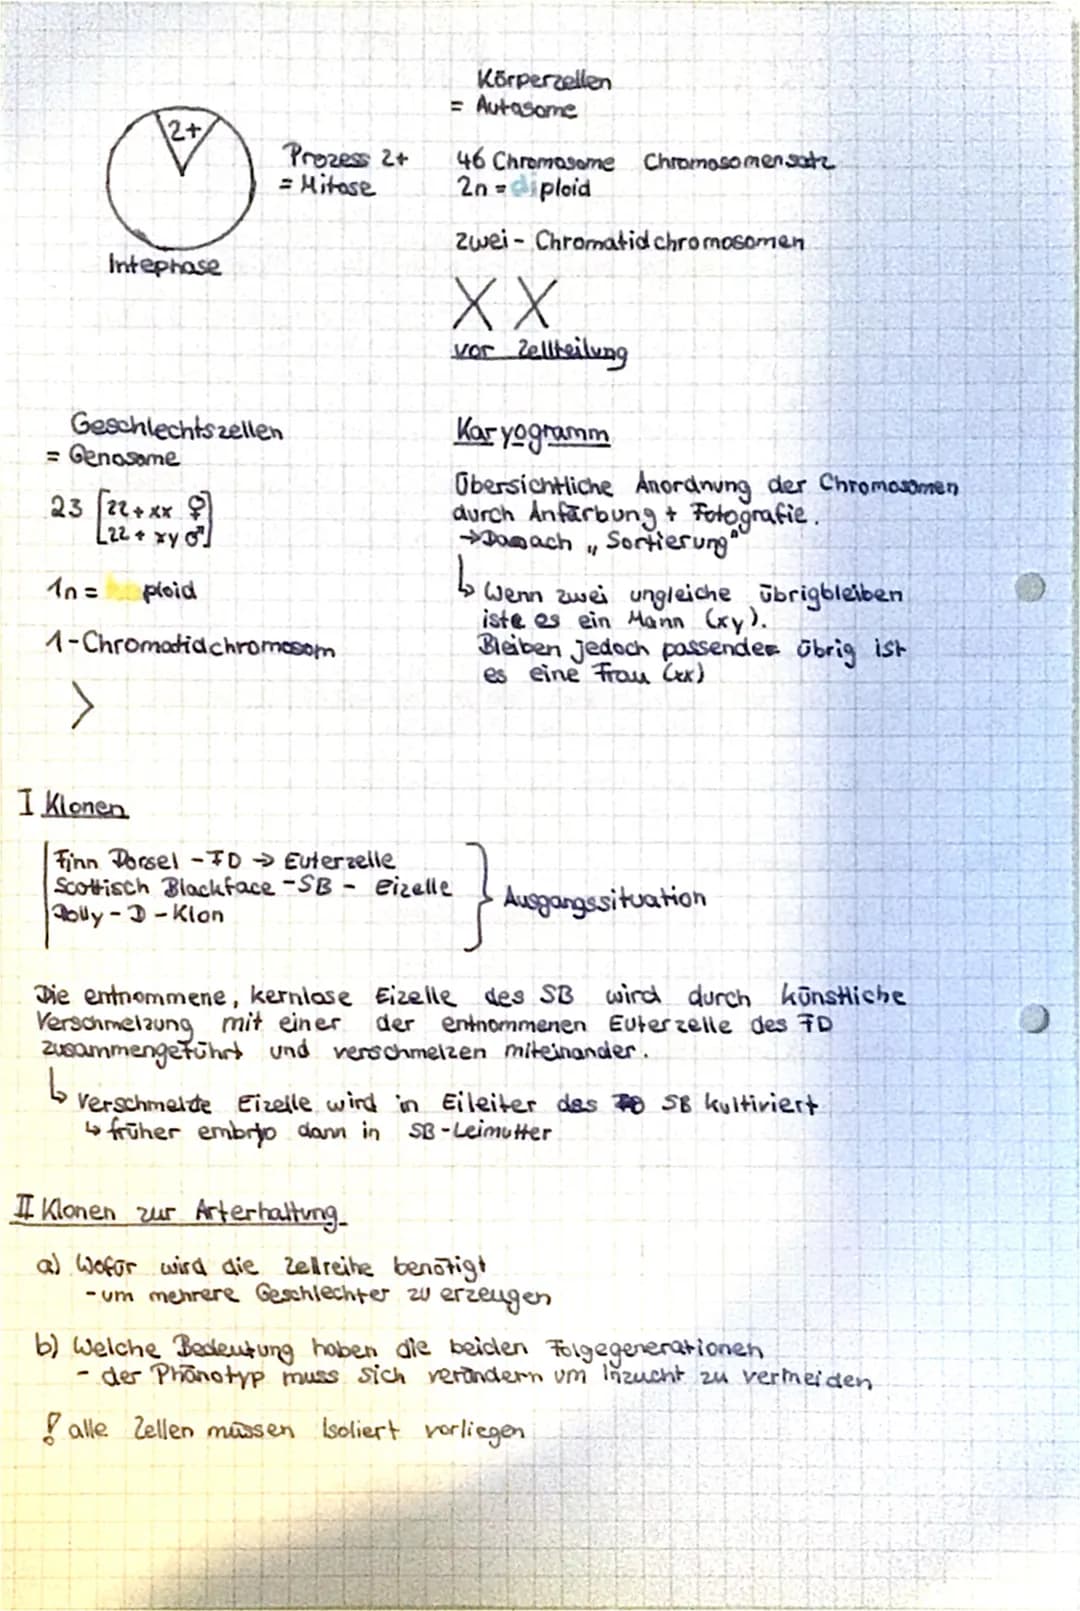 Körperzellen
= Autosome
2+
Prozess 2+
= Mitose
46 Chromosome Chromosomensatz
2n = diploid
zwei - Chromatidchromosomen
Intephase
X X
vor Zellteilung
Geschlechtszellen
= Genosome
23 [22 + xx ♀]
[22 + xy ♂]
1n = haploid
1-Chromatidchromosom
Karyogramm
Übersichtliche Anordnung der Chromosomen
durch Anfärbung + Fotografie.
→ Danach „Sortierung"
↳ Wenn zwei ungleiche übrigbleiben
iste es ein Mann (xy).
Bleiben jedoch passender übrig ist
es eine Frau (xx)
I Klonen
Finn Dorsel - FD → Euterzelle
Scottisch Blackface - SB - Eizelle
Dolly - D - Klon
Ausgangssituation
Die entnommene, kernlose Eizelle des SB wird durch künstliche
Verschmelzung mit einer der entnommenen Euterzelle des FD
zusammengeführt und verschmelzen miteinander.
↳ Verschmelzte Eizelle wird in Eileiter des SB kultiviert
↳ früher embryo dann in SB-Leimutter
II Klonen zur Arterhaltung
a) Wofür wird die Zellreihe benötigt
- um mehrere Geschlechter zu erzeugen
b) Welche Bedeutung haben die beiden Folgegenerationen
- der Phänotyp muss sich verändern um Inzucht zu vermeiden
! alle Zellen müssen Isoliert vorliegen